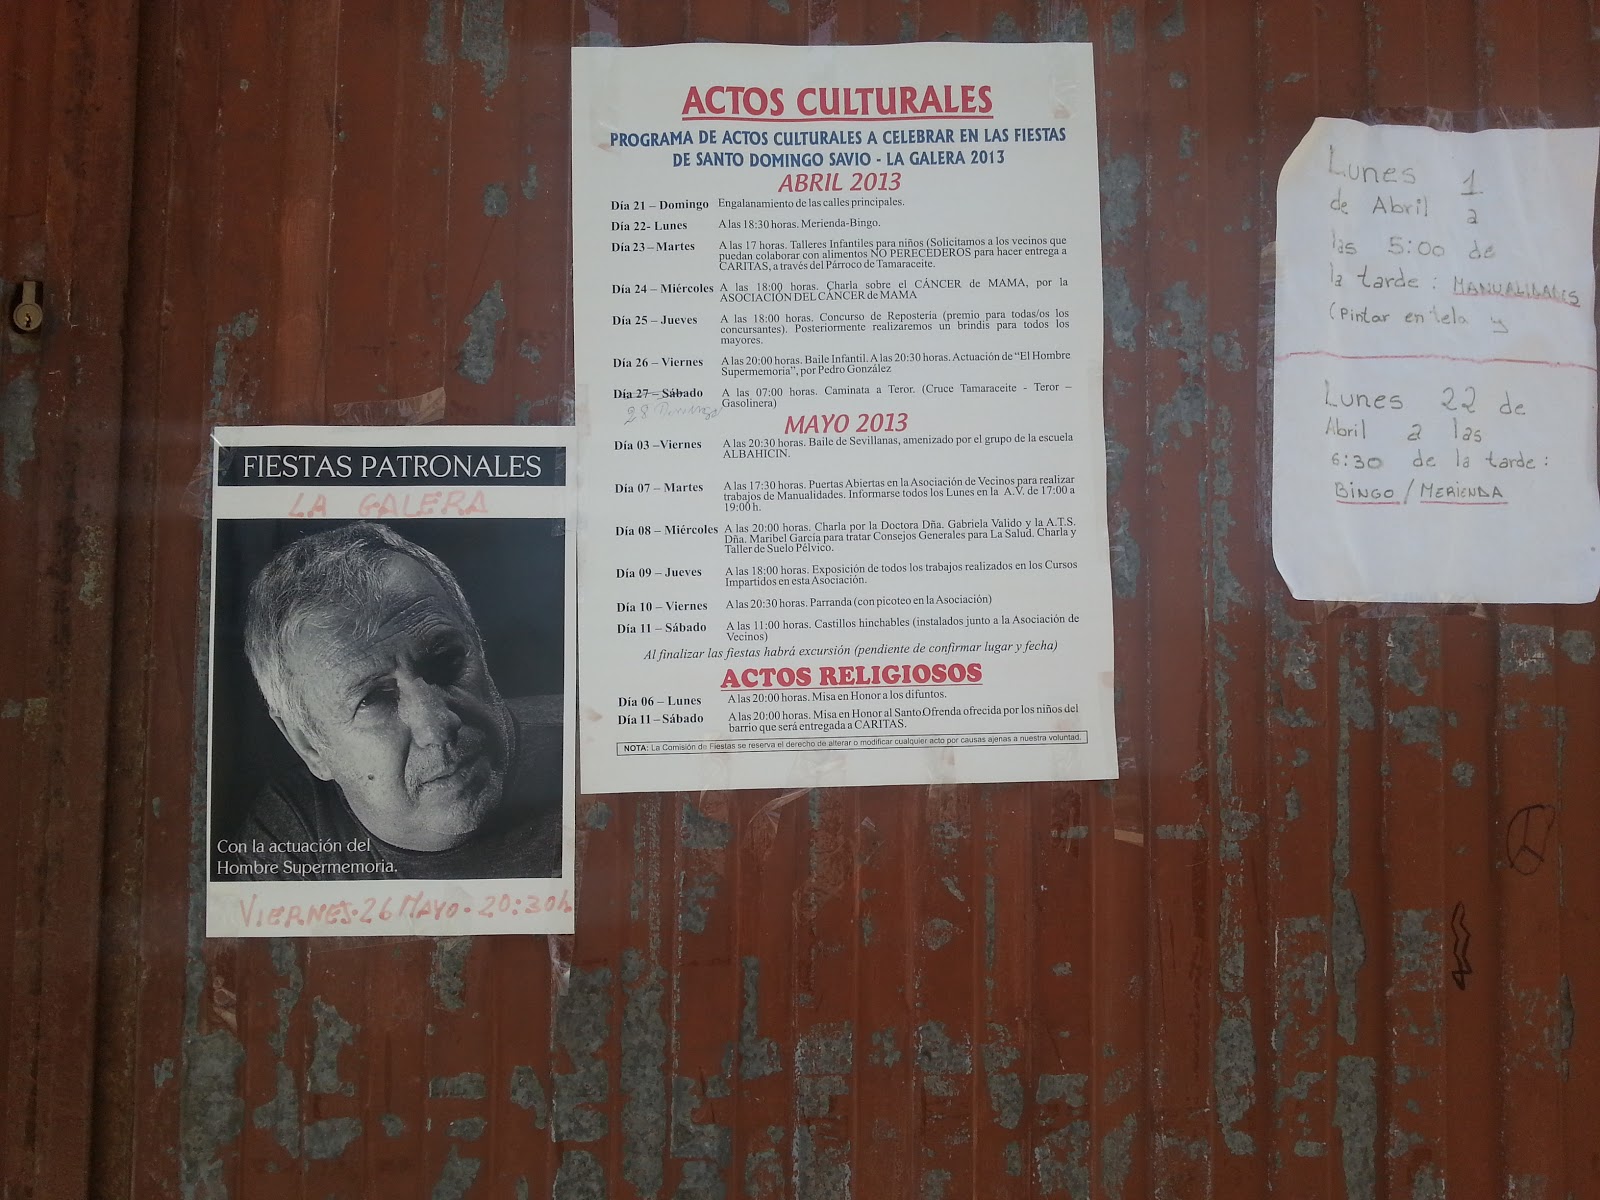 FIESTAS PATRONALES
LA GALERA
Con la actuación del
Hombre Supermemoria.
VIERNES·26 MAYO·20:30h
ACTOS CULTURALES
PROGRAMA DE ACTOS CULTURALES A CELEBRAR EN LAS FIESTAS
DE SANTO DOMINGO SAVIO - LA GALERA 2013
ABRIL 2013
Día 21 – Domingo Engalanamiento de las calles principales.
Día 22- Lunes A las 18:30 horas. Merienda-Bingo.
Día 23 – Martes A las 17 horas. Talleres Infantiles para niños (Solicitamos a los vecinos que
puedan colaborar con alimentos NO PERECEDEROS para hacer entrega a
CARITAS, a través del Párroco de Tamaraceite.
Día 24 – Miércoles A las 18:00 horas. Charla sobre el CÁNCER de MAMA, por la
ASOCIACIÓN DEL CÁNCER de MAMA
Día 25 – Jueves A las 18:00 horas. Concurso de Repostería (premio para todas/os los
concursantes). Posteriormente realizaremos un brindis para todos los
mayores.
Día 26 – Viernes A las 20:00 horas. Baile Infantil. A las 20:30 horas. Actuación de “El Hombre
Supermemoria”, por Pedro González
Día 27 – Sábado A las 07:00 horas. Caminata a Teror. (Cruce Tamaraceite - Teror –
28 Domingo Gasolinera)
MAYO 2013
Día 03 –Viernes A las 20:30 horas. Baile de Sevillanas, amenizado por el grupo de la escuela
ALBAHICIN.
Día 07 – Martes A las 17:30 horas. Puertas Abiertas en la Asociación de Vecinos para realizar
trabajos de Manualidades. Informarse todos los Lunes en la A.V. de 17:00 a
19:00 h.
Día 08 – Miércoles A las 20:00 horas. Charla por la Doctora Dña. Gabriela Valido y la A.T.S.
Dña. Maribel García para tratar Consejos Generales para La Salud. Charla y
Taller de Suelo Pélvico.
Día 09 – Jueves A las 18:00 horas. Exposición de todos los trabajos realizados en los Cursos
Impartidos en esta Asociación.
Día 10 – Viernes A las 20:30 horas. Parranda (con picoteo en la Asociación)
Día 11 – Sábado A las 11:00 horas. Castillos hinchables (instalados junto a la Asociación de
Vecinos)
Al finalizar las fiestas habrá excursión (pendiente de confirmar lugar y fecha)
ACTOS RELIGIOSOS
Día 06 – Lunes A las 20:00 horas. Misa en Honor a los difuntos.
Día 11 – Sábado A las 20:00 horas. Misa en Honor al Santo.Ofrenda ofrecida por los niños del
barrio que será entregada a CARITAS.
NOTA: La Comisión de Fiestas se reserva el derecho de alterar o modificar cualquier acto por causas ajenas a nuestra voluntad.
Lunes 1
de Abril a
las 5:00 de
la tarde: MANUALIDADES
(Pintar en tela y
Lunes 22 de
Abril a las
6:30 de la tarde:
BINGO / MERIENDA